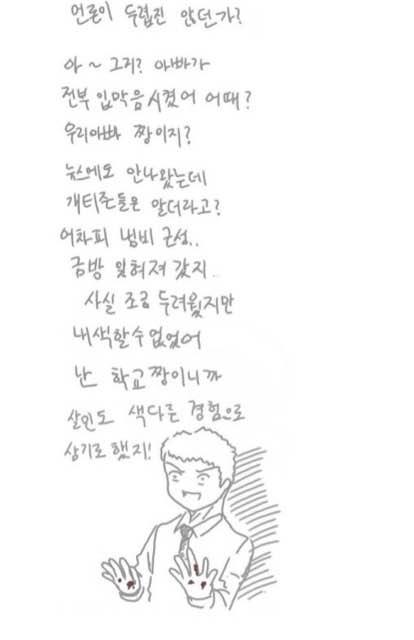 언론이 두렵진 않던가?
아~ 그거? 아빠가
전부 입막음시켰어 어때?
우리아빠 짱이지?
뉴스에도 안나왔는데
개티즌들은 알더라고?
어차피 냄비 근성..
금방 잊혀져 갔지..
사실 조금 두려웠지만
내색할수 없었어
난 학교짱이니까
살인도 색다른 경험으로
삼기로 했지!